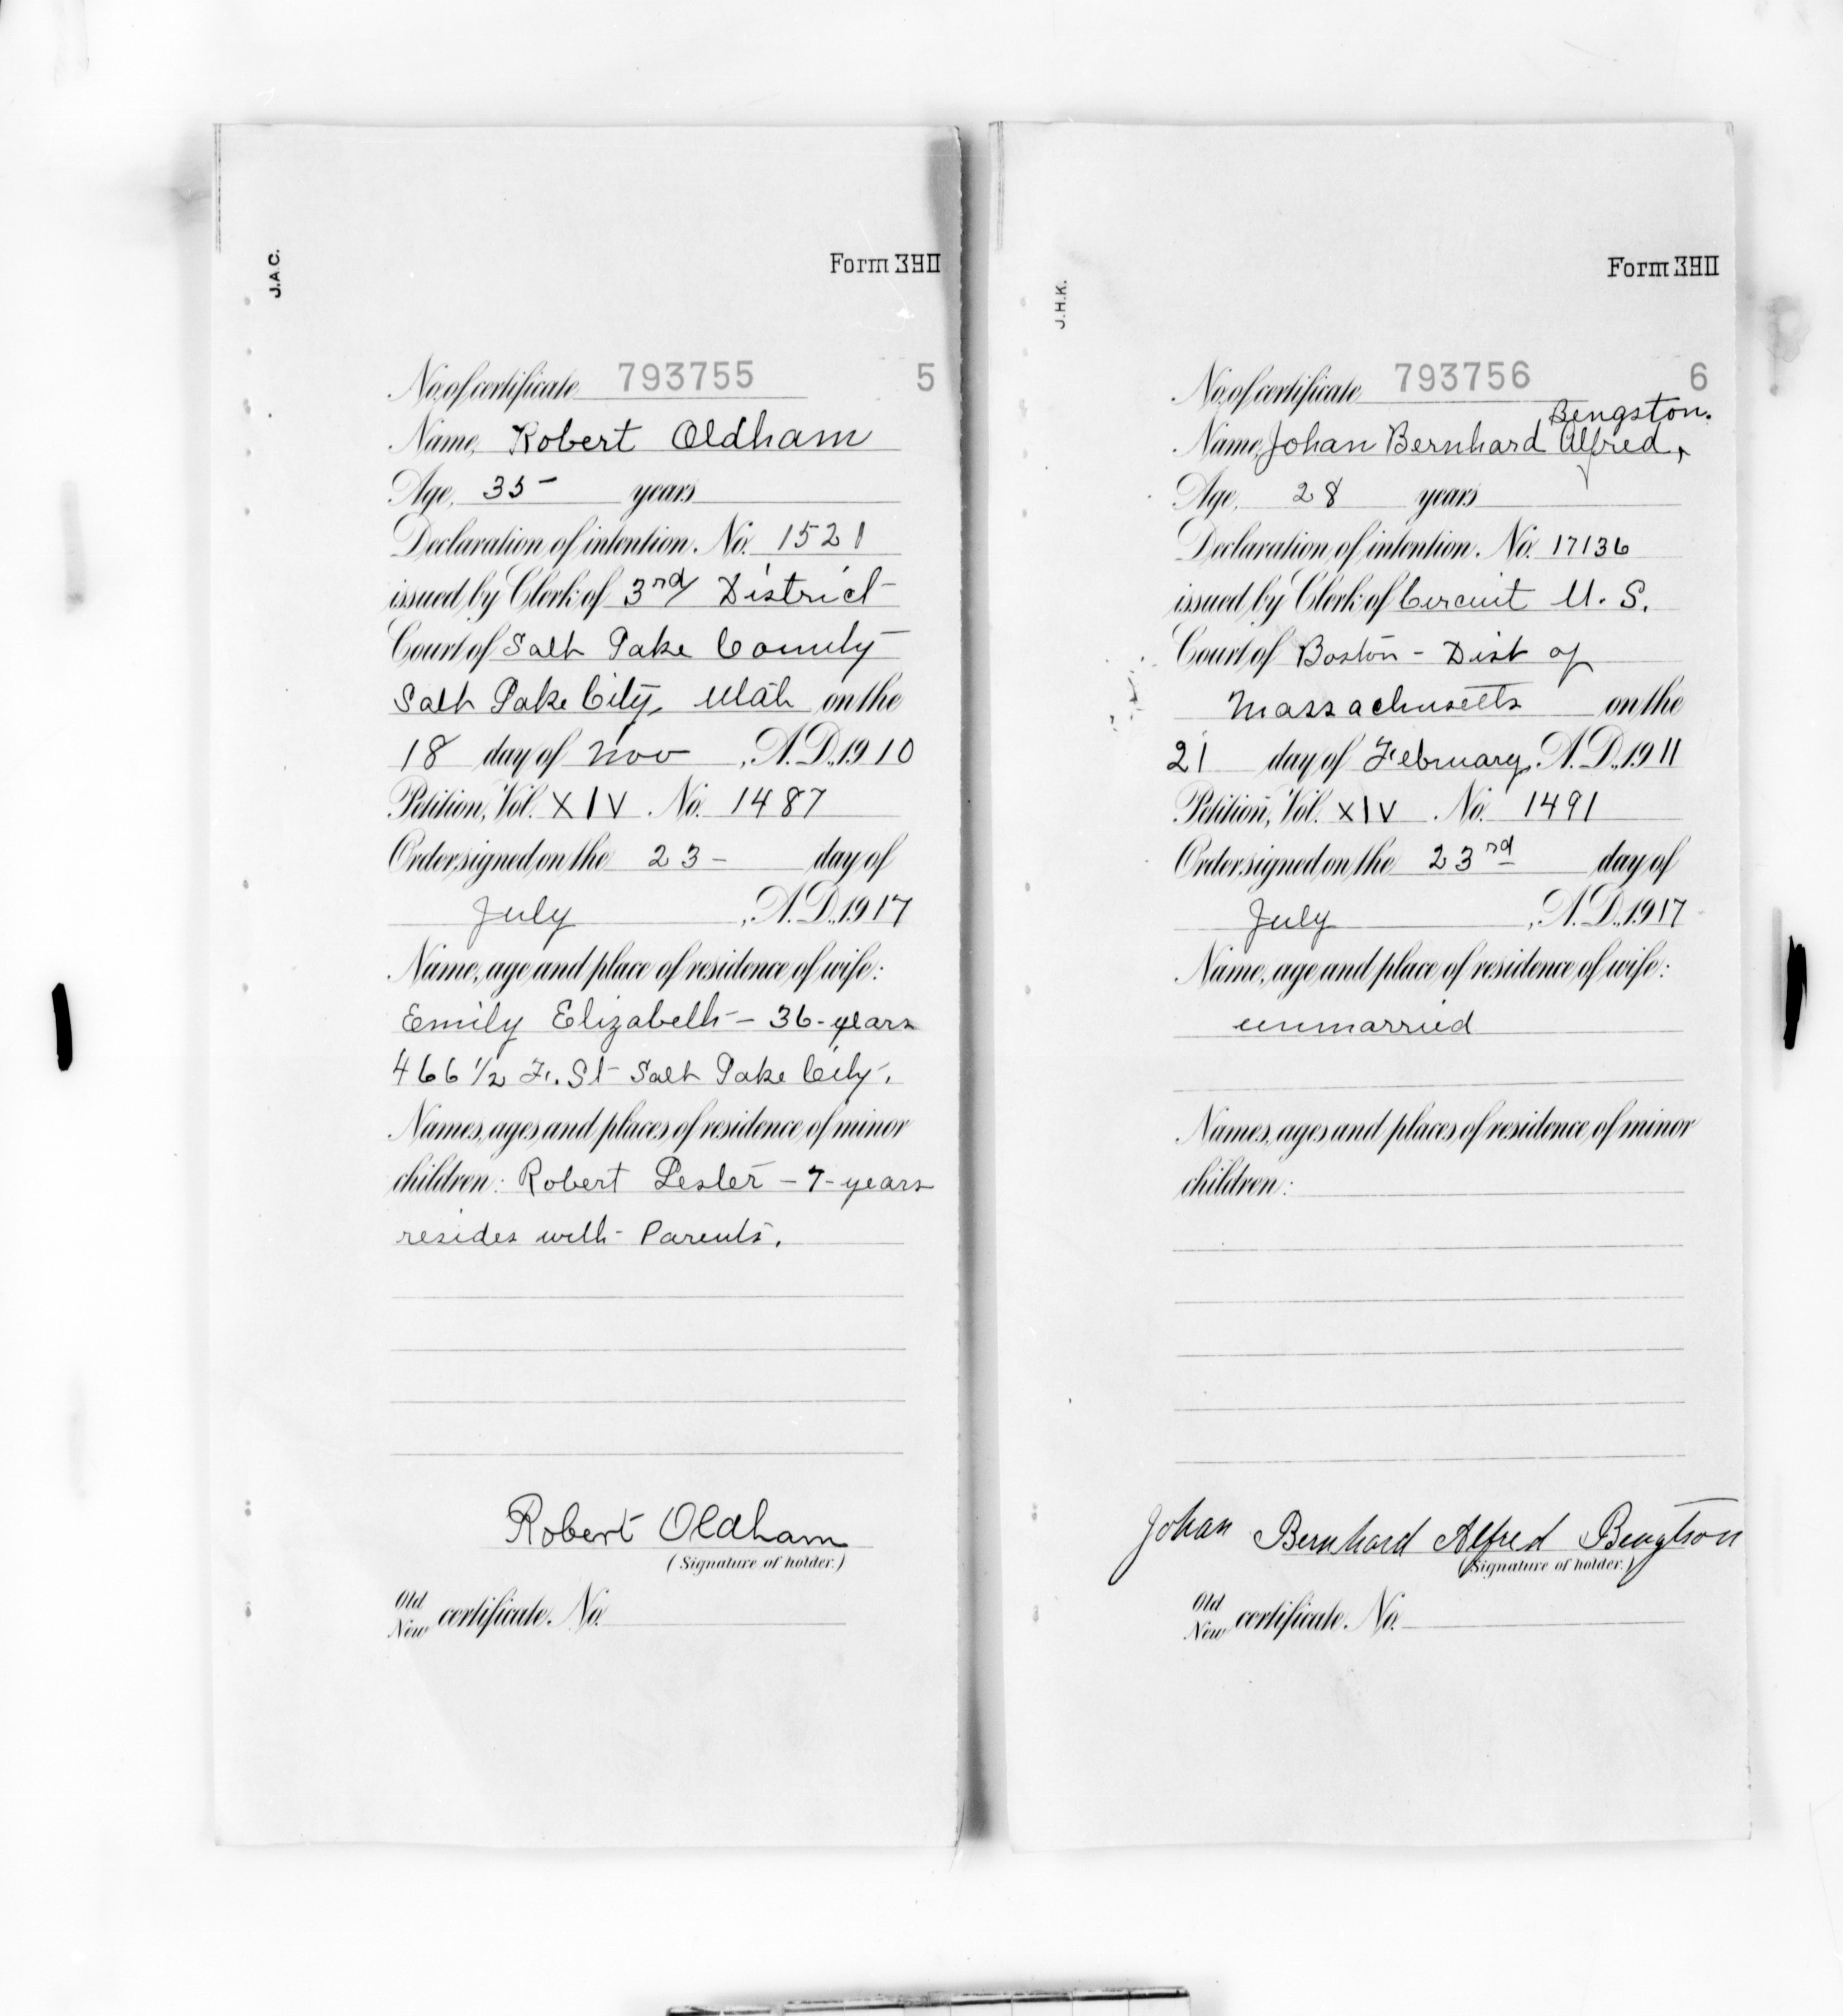 J.A.C.
Form 390
No. of certificate 793755 5
Name, Robert Oldham
Age, 35 - years
Declaration of intention. No. 1521
issued by Clerk of 3rd District
Court of Salt Lake County
Salt Lake City, Utah on the
18 day of Nov, A.D. 1910
Petition, Vol. XIV No. 1487
Order signed on the 23 - day of
July, A.D. 1917
Name, age and place of residence of wife:
Emily Elizabeth - 36 - years
466 1/2 F. St Salt Lake City.
Names, ages and places of residence of minor
children: Robert Lester - 7 - years
resides with Parents.
Robert Oldham
(Signature of holder.)
Old
New certificate. No.
J.H.K.
Form 390
No. of certificate 793756 6
Bengston.
Name, Johan Bernhard Alfred,
Age, 28 years
Declaration of intention. No. 17136
issued by Clerk of Circuit U. S.
Court of Boston - Dist of
Massachusetts on the
21 day of February, A.D. 1911
Petition, Vol. XIV No. 1491
Order signed on the 23rd day of
July, A.D. 1917
Name, age and place of residence of wife:
unmarried
Names, ages and places of residence of minor
children:
Johan Bernhard Alfred Bengtson
(Signature of holder.)
Old
New certificate. No.